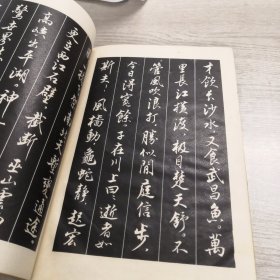 才飲長沙水又食武昌魚。萬
里長江橫渡,極目楚天舒。不
管風吹浪打,勝似閒庭信步,
今日得寬餘。子在川上曰:逝者如
斯夫!風檣動,龜蛇靜,起宏
天塹變通途。
更立西江石壁,截斷巫山雲
高峽出平湖。神
驚世界